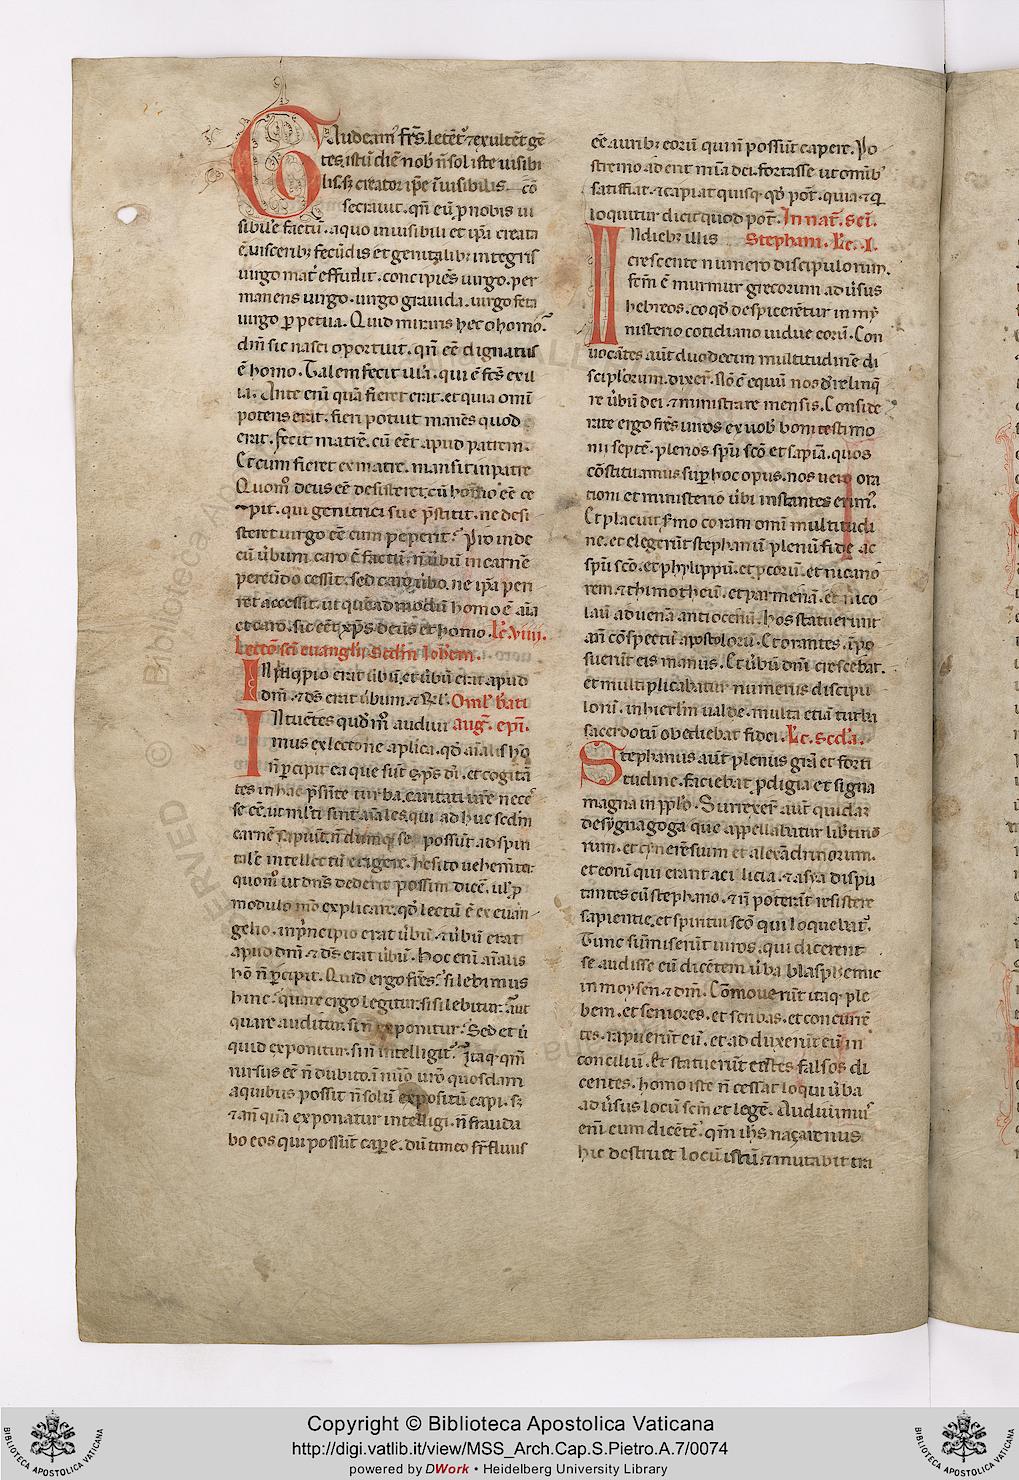 Gaudeam' frs. letent' ⁊ exultent gē
tes. istū diē nob n̄ sol iste uisibi
lis. sȝ creator ipe īuisibilis. cō
secrauit. qn̄ eū p nobis ui
sibile factū. a quo inuisibili et ipa creata
ē. uiscerib; fecūdis et genitalib; integris
uirgo mat' effudit. concipiēs uirgo. per
manens uirgo. uirgo grauida. uirgo feta
uirgo ꝑpetua. Quid miraris hec o homo?
dm̄ sic nasci oportuit. qn̄ eē dignatus
ē homo. Talem fecit illā. qui ē fcs ex il
la. Ante enī quā fieret erat. et quia omī
potens erat. fieri potuit manēs quod
erat. fecit matrē. cū eēt apud patrem.
Et cum fieret ex matre. mansit in patre
Quom° deus eē desisteret. cū homo eē ce
pit. qui genitrici sue pstitit. ne desi
steret uirgo eē cum peperit? Proinde
cū ubum caro ē factū. n̄ ubū in carnē
pereūdo cessit. sed caro ad ubo. ne ipa peri
ret accessit. ut quēadmodū homo ē aīa
et caro. sic eēt xp̄s deus et homo. Lc̄. viiii.
Lectō sc̄i euanglii. Scdm Ioħem.
IN p̄ncipio erat ubū. et ubū erat apud
dm̄. ⁊ ds̄ erat ubum. ⁊ Rl'. Oml' bati
INtuētes quod m° audiui aug̃. epī.
mus ex lectone aplica. qđ aīalis hō
n̄ ꝑcipit ea que sūt sp̄s dī. et cogitā
tes in hac p̄snte turba. caritati ur̄e necē
se eē. ut multi sint aīales. qui adhuc scdm
carnē sapiūt. n̄ dumq; se possūt. ad spiri
talē intellectū erigere. hesito uehem̄ter
quom° ut dn̄s dederit possim dicē. ul' p
modulo m̄o explicare. qđ lectū ē ex euan
gelio. in p̄ncipio erat ubū. ⁊ ubū erat
apud dm̄. ⁊ ds̄ erat ubū. hoc enī aīalis
hō n̄ ꝑcipit. Quid ergo frēs? silebimus
hinc? quare ergo legitur. si silebitur? aut
quare auditur. si n̄ exponitur? Sed et ut
quid exponitur. si n̄ intelligit'? Itaq; qm̄
rursus eē n̄ dubito. ī nūo uro quosdam
a quibus possit n̄ solū expositū capi. sȝ
⁊ an̄ quā exponatur intelligi. n̄ frauda
bo eos qui possūt cape. dū timeo sr̄fluus
eē. aurib; eorū qui n̄ possūt capere. Po
stremo aderit mīa dei. fortasse ut omīb'
satisfiat. ⁊ capiat quisq; qđ pot̄. quia ⁊ q
loquitur dicit quod pot̄. In nat̄. sc̄i.
IN dieb; illis Stephani. Lc̄. I.
crescente numero discipulorum.
fcm̄ ē murmur grecorum aduersus
hebreos. eo qđ despicerētur in my
nisterio cotidiano uidue eorū. Con
uocātes aūt duodecim multitudinē di
scipl'orum. dixer̄. Nō ē equū nos derelinq
re ubū dei. ⁊ ministrare mensis. Conside
rate ergo frēs uiros ex uob' boni testimo
nii septē. plenos spū scō et sapīa. quos
cōstituamus sup hoc opus. nos uero ora
tioni et ministerio ubi instantes erim'.
Et placuit sermo coram omī multitudi
ne. et elegerūt stephanū plenū fide ac
spū scō. et phylippū. et pcorū. et nicano
rem. ⁊ thimotheū. et parmenā. et nico
laū aduenā antiocenū. hos statuerunt
an̄ cōspectū apostolorū. Et orantes. īpo
suerūt eis manus. Et ubū dn̄i crescebat.
et multiplicabatur numerus discipu
lorū. in hierlm̄ ualde. multa etiā turba
sacerdotū obediebat fidei. Lc̄. Scd'a.
Stephanus aūt plenus gra et forti
tudine. faciebat pdigia et signa
magna in pplo. Surrexer' aūt quidaȝ
de synagoga que appellabatur libtino
rum. et cyrenēsium et alexādrinorum.
et eorū qui erant a cilicia. ⁊ asya dispu
tantes cū stephano. ⁊ n̄ poterūt resistere
sapientie. et spiritui scō qui loquebat'.
Tunc sūmiserūt uiros. qui dicerent
se audisse eū dicētem uba blasphemie
in moysen. ⁊ dm̄. Cōmouerūt itaq; ple
bem. et seniores. et scribas. et concurrē
tes. rapuerūt eū. et adduxerūt eū in
conciliū. Et statuerūt testes falsos di
centes. homo iste n̄ cessat loqui uba
aduersus locū scm̄ et legē. Audiuimus
enī eum dicētē. qm̄ ih̄s naçarenus
hic destruet locū istū. ⁊ mutabit tra
Copyright © Biblioteca Apostolica Vaticana
http://digi.vatlib.it/view/MSS_Arch.Cap.S.Pietro.A.7/0074
powered by DWork • Heidelberg University Library
BIBLIOTECA APOSTOLICA VATICANA
BIBLIOTECA APOSTOLICA VATICANA